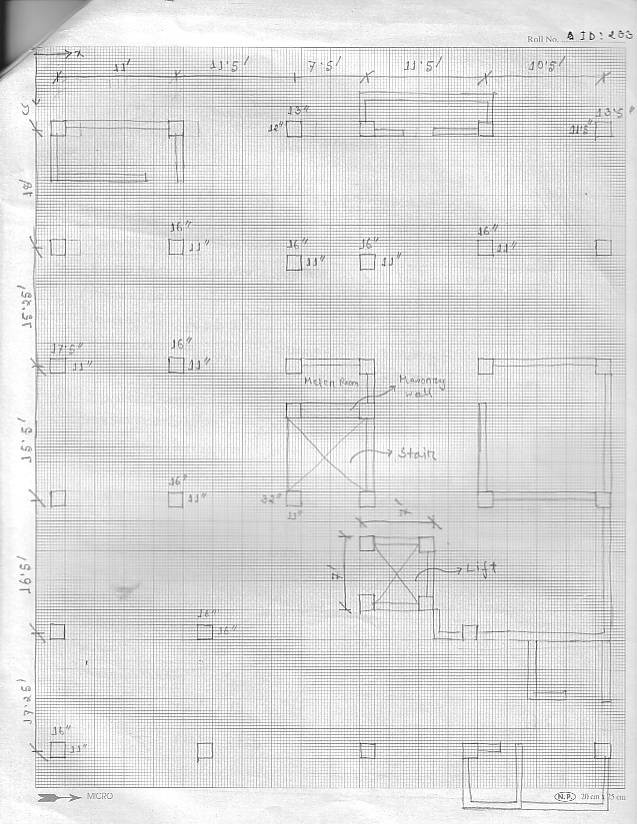 Roll No. ID: 203
x
11' 11.5' 7.5' 11.5' 10.5'
13" 13.5"
12" 11.5"
16" 16"
11" 16" 16" 11"
11" 11"
15.25'
17.5" 16"
11" 11"
Meter Room Masonry
wall
15.5'
Stair
16" 32"
11" 11"
7'
7' Lift
16.5'
16"
16"
17.25'
16"
11"
MICRO N.P. 20 cm x 25 cm